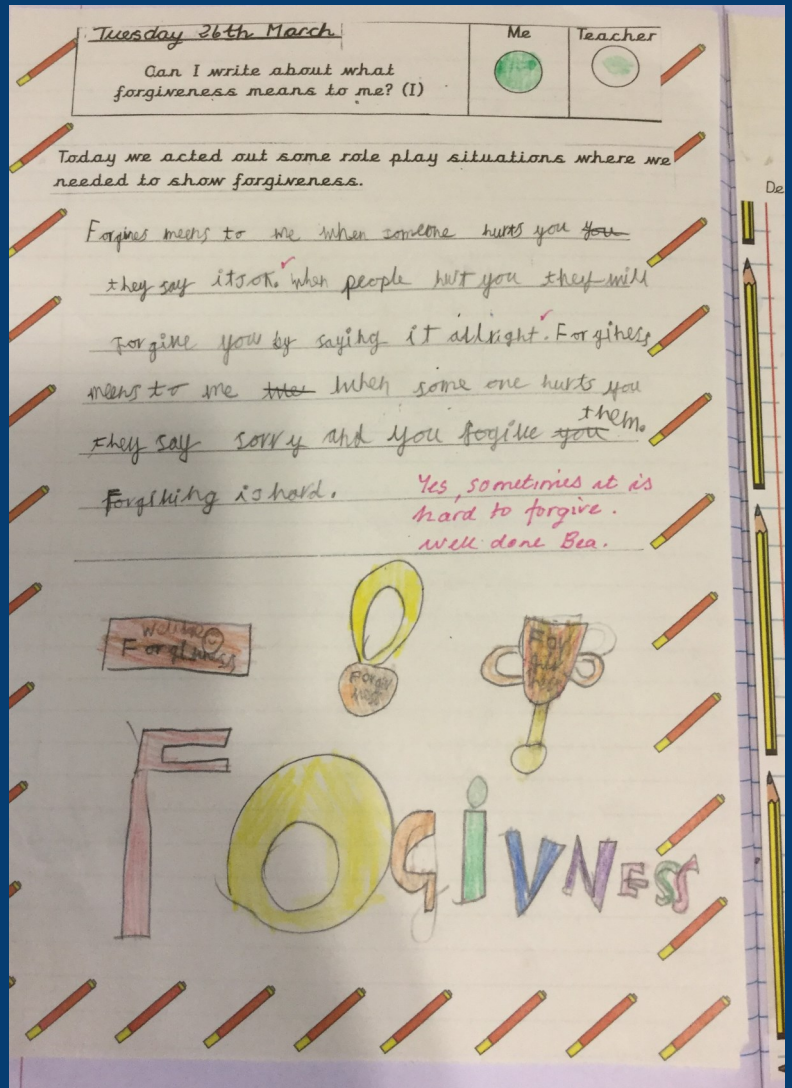 Tuesday 26th March
Me
Teacher
Can I write about what
forgiveness means to me? (I)
Today we acted out some role play situations where we
needed to show forgiveness.
Forgines meens to me when someone hurts you you
they say itsok. when people hurt you they will
Forgive you by saying it allright. Forginess
meens to me when some one hurts you
they say sorry and you fogive you them.
Forgining is hard.
Yes, sometimes it is
hard to forgive.
Well done Bea.
Forginess
FOgiVNESS
De